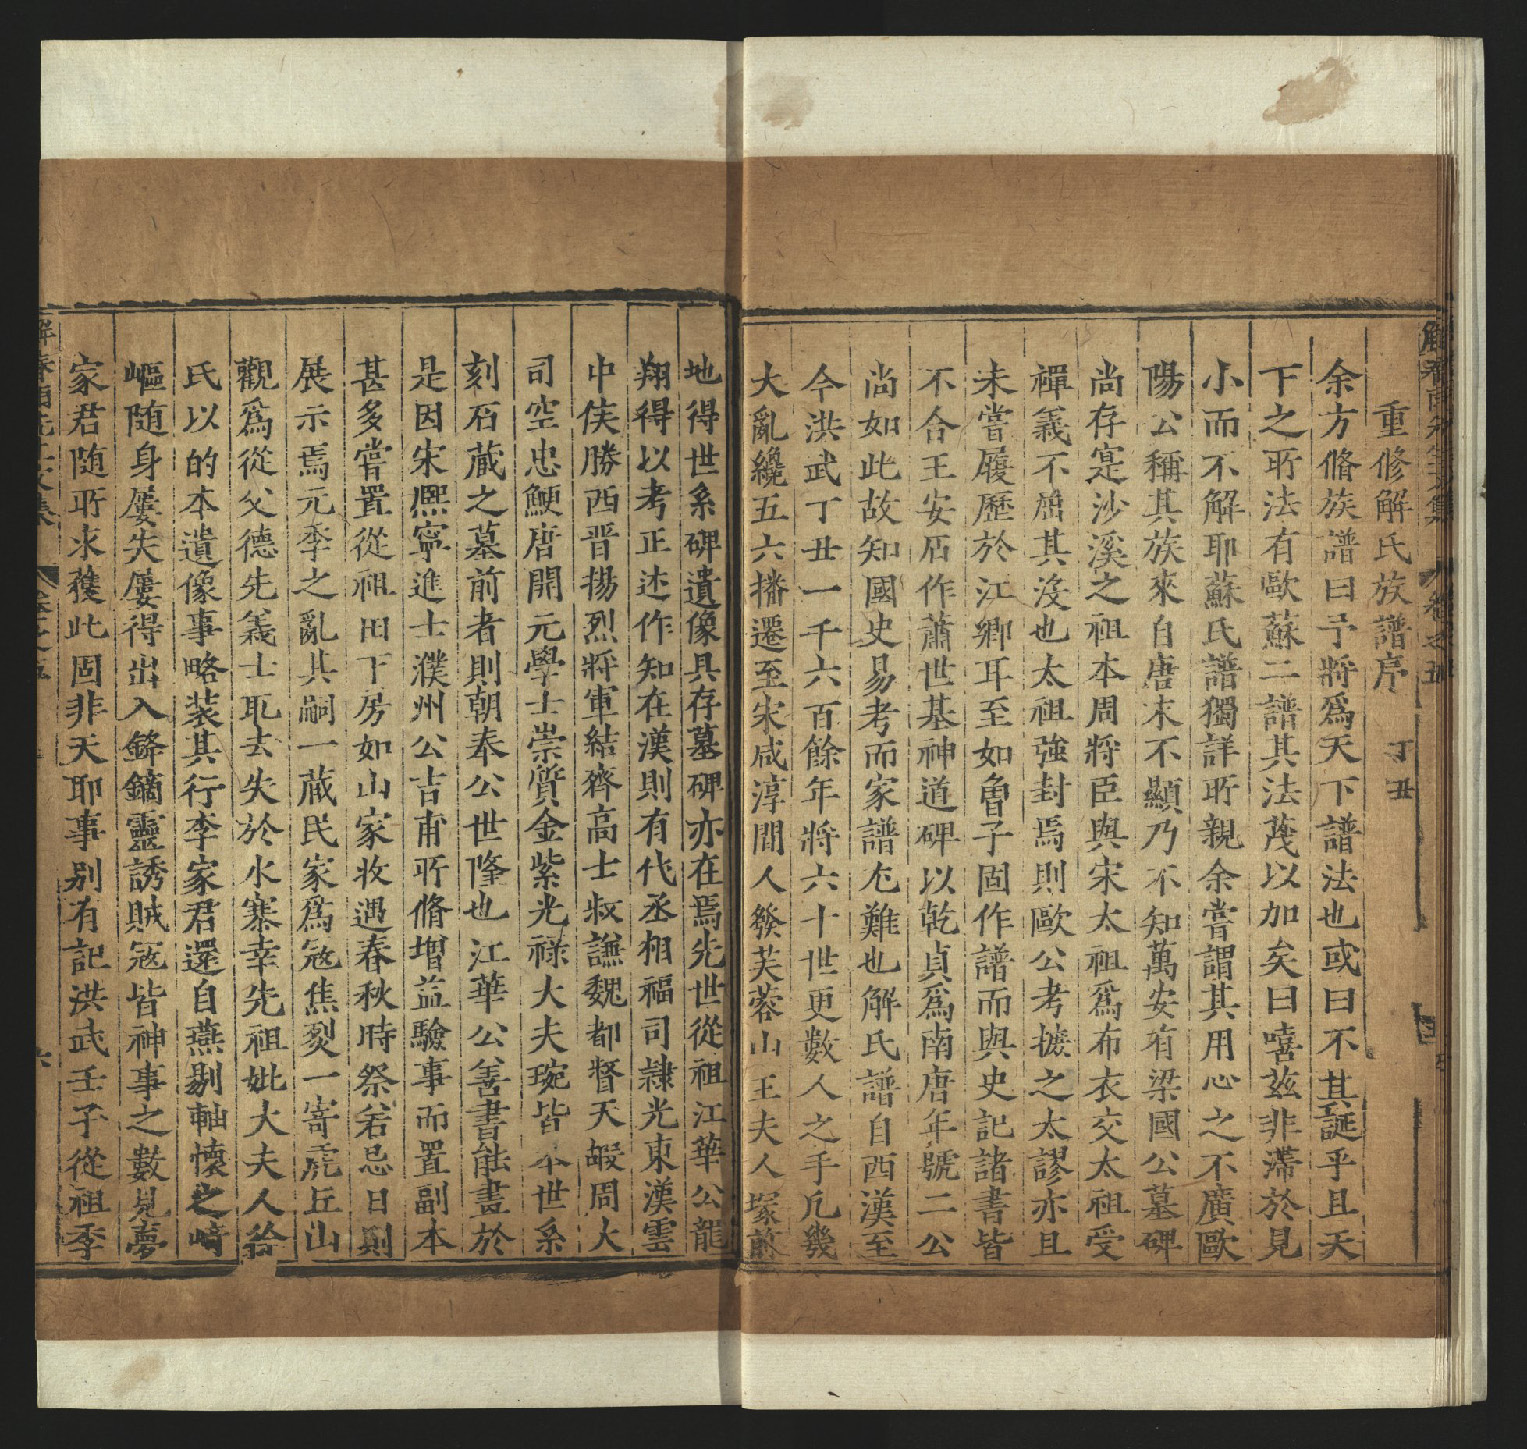 重修解氏族譜序 丁丑
余方脩族譜曰予將爲天下譜法也或曰不其誕乎且天
下之所法有歐蘇二譜其法茂以加矣曰嘻兹非滯於見
小而不解耶蘇氏譜獨詳所親余嘗謂其用心之不廣歐
陽公稱其族來自唐末不顯乃不知萬安有梁國公墓碑
尚存寔沙溪之祖本周將臣與宋太祖爲布衣交太祖受
禪義不屑其沒也太祖強封焉則歐公考據之太謬亦且
未嘗履歷於江鄉耳至如魯子固作譜而與史記諸書皆
不合王安石作蕭世基神道碑以乾貞爲南唐年號二公
尚如此故知國史易考而家譜尤難也解氏譜自西漢至
今洪武丁丑一千六百餘年將六十世更數人之手凡幾
大亂纔五六播遷至宋咸淳間人發芙蓉山王夫人塚前
地得世系碑遺像具存墓碑亦在焉先世從祖江華公龍
翔得以考正述作知在漢則有代丞相福司隸光東漢雲
中侯勝西晋揚烈將軍結齊高士叔謙魏都督天嘏周大
司空忠鯁唐開元學士崇質金紫光祿大夫琬皆不世系
刻石藏之墓前者則朝奉公世隆也江華公善書能畫於
是因宋熙寧進士濮州公吉甫所脩增益驗事而置副本
甚多嘗置從祖田下房如山家收遇春秋時祭若忌日則
展示焉元季之亂其嗣一藏民家爲冦焦烈一寄虎丘山
觀爲從父德先義士取去失於水寨幸先祖妣大夫人
氏以的本遺像事略装其行李家君還自燕剔軸懷之崎
嶇随身屢失屢得出入鋒鏑靈誘賊冦皆神事之數見夢
家君随所求獲此固非天耶事别有記洪武壬子從祖季